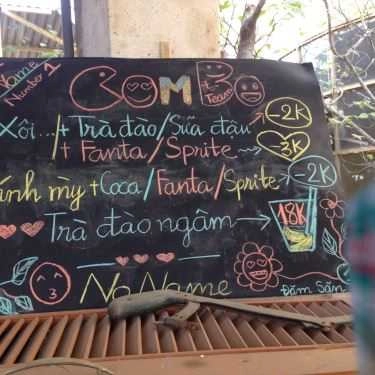 Name
Number 1
ComBo
+ Team
Xôi... + Trà đào/Sữa đậu -2K
+ Fanta/Sprite -3K
ánh mỳ + Coca/Fanta/Sprite -2K
Trà đào ngâm 18K
No Name
Đăm Săn